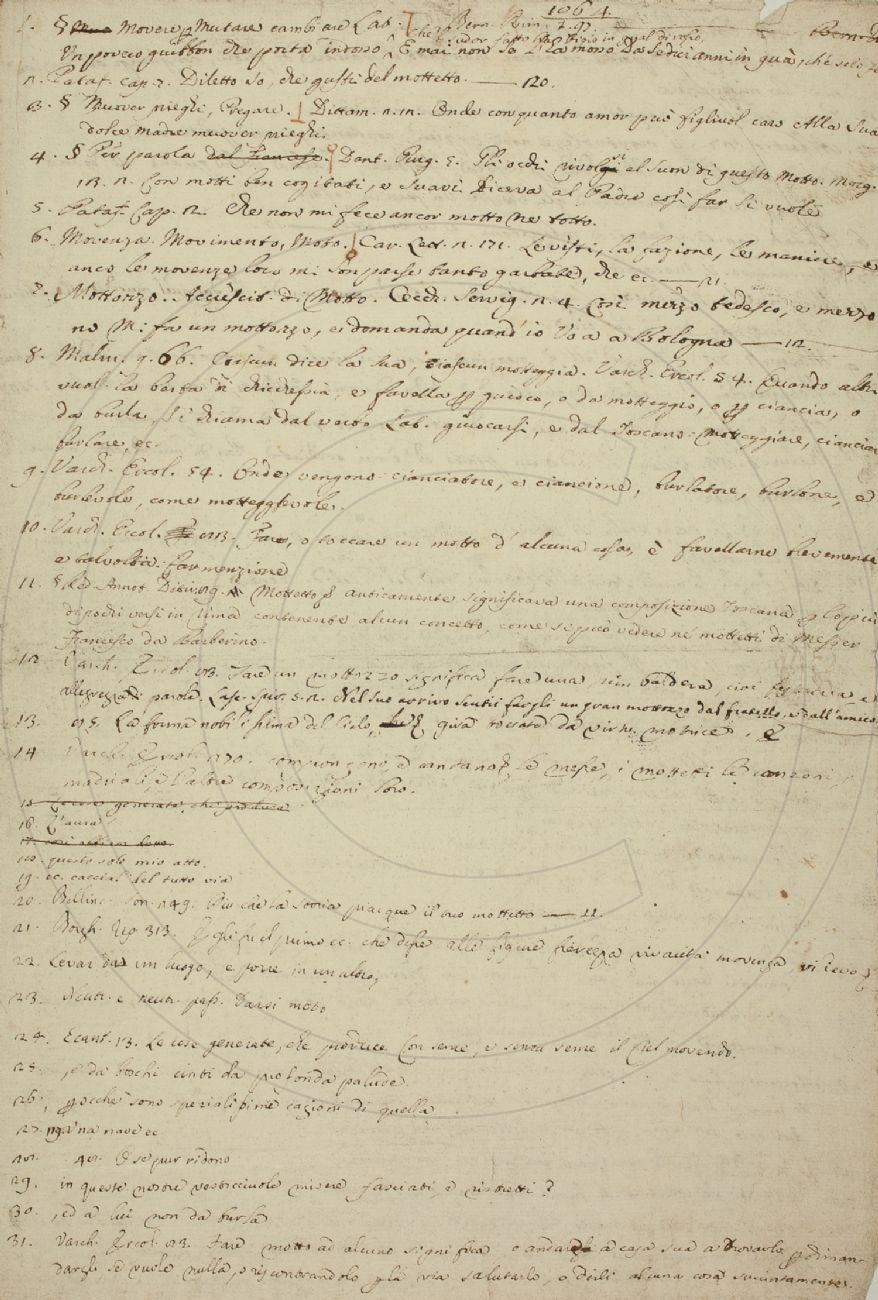 1064
1. § Movere p Mutare cambiare Lat. Bern. Rim. 1. 97.
Un povero che porta intorno E mai non so la mosso Da sedici anni in quà, che
2. Pataf. cap. 7. Diletto so, che gusti del mottetto. — 120.
3. § Muover prieghi, Pregare. Dittam. 1. 11. Onde con quanto amor può figliuol caro Alla sua
dolce madre muover prieghi.
4. § Per parola dal francese. Dant. Purg. 5. Gli occhi rivolsi al suon di questo motto. Morg.
13. 2. Con motti ben cogitati, e suavi. al Padre così far si vuole
5. Pataf. Cap. 2. Che non mi fece ancor motto ne totto.
6. Movenza. Movimento, Moto. Car. Lett. 2. 171. Le visti, la fazione, le maniere, e
anco le movenze loro mi son parse tanto garbate, che ec. — 21.
7. Mottozzo. Accrescit. di Motto. Cecch. Servig. 2. 4. Così mezzo tedesco, e mezzo
no M. fa un mottozzo, e domanda quand' io vo a Bologna — 12.
8. Malm. 9. 66. Ciascun dice la sua, ciascun motteggia. Varch. Ercol. 54. Quando altri
vuol la baia di chicchessia, e favella p giuoco, o da motteggio, o p ciancia, o
da burla, si chiama dal verbo Lat. giuocarsi, e dal Toscano: Motteggiare, cianciar
burlare, ec.
9. Varch. Ercol. 54. Onde vengono cianciatore, e ciancione, burlatore, burlone, e
burlevole, come motteggevole.
10. Varch. Ercol. 93. Fare, o toccare un motto d' alcuna cosa, è favellarne brevemente
e talvolta far menzione
11. § Red. Annot. Ditir. Mottetto p anticamente significava una composizione Toscana p lo più
di pochi versi in rima contenente alcun concetto, come si può vedere ne' mottetti di Messer
Francesco da Barberino.
12. Varch. Ercol. 93. Fare un mottozzo significa fare una rimbaldera, cioè festoccia e
allegrezza di parole. Lasc. Spir. 5. 2. Nel suo arrivo sentii fargli un gran mottozzo dal fratello, e dall' amico.
13. 95. La forma nobilissima del Cielo, girà toccata da virtù motrice.
14. Varch. Ercol. 270. Compongono, e cantano le messe, i mottetti le canzoni,
madriali, e l' altre composizioni loro.
15. Le cose generate, che produce
16. L' aura
17.
18. questo solo mio atto.
19. ec. cacciai del tutto via
20. Bellinc. Son. 249. Più che la storia piacque il tuo mottetto — 11.
21. Borgh. Rip. 313. Egli fu il primo ec. che desse alle figure fierezza vivacità movenza
22. Levar da un luogo, e porre in un altro,
23. Neutr. e neutr. pass. Darsi moto
24. E cant. 13. Le cose generate, che produce Con seme, e senza seme il Ciel movendo.
25. , e da boschi cinti da profonda palude.
26. , p ocche sono spezialissime cagioni di quella
27. Una nave ec.
28. E se pur ridono
29. in queste nostre vesticciuole misere fasciati, e ristretti?
30. , ed a lui non da burla
31. Varch. Ercol. 93. Fare motto ad alcuno significa o andare a casa sua a trovarlo p diman-
dargli se vuole nulla, o riscontrandolo p la via salutarlo, o dirli alcuna cosa succintamente.